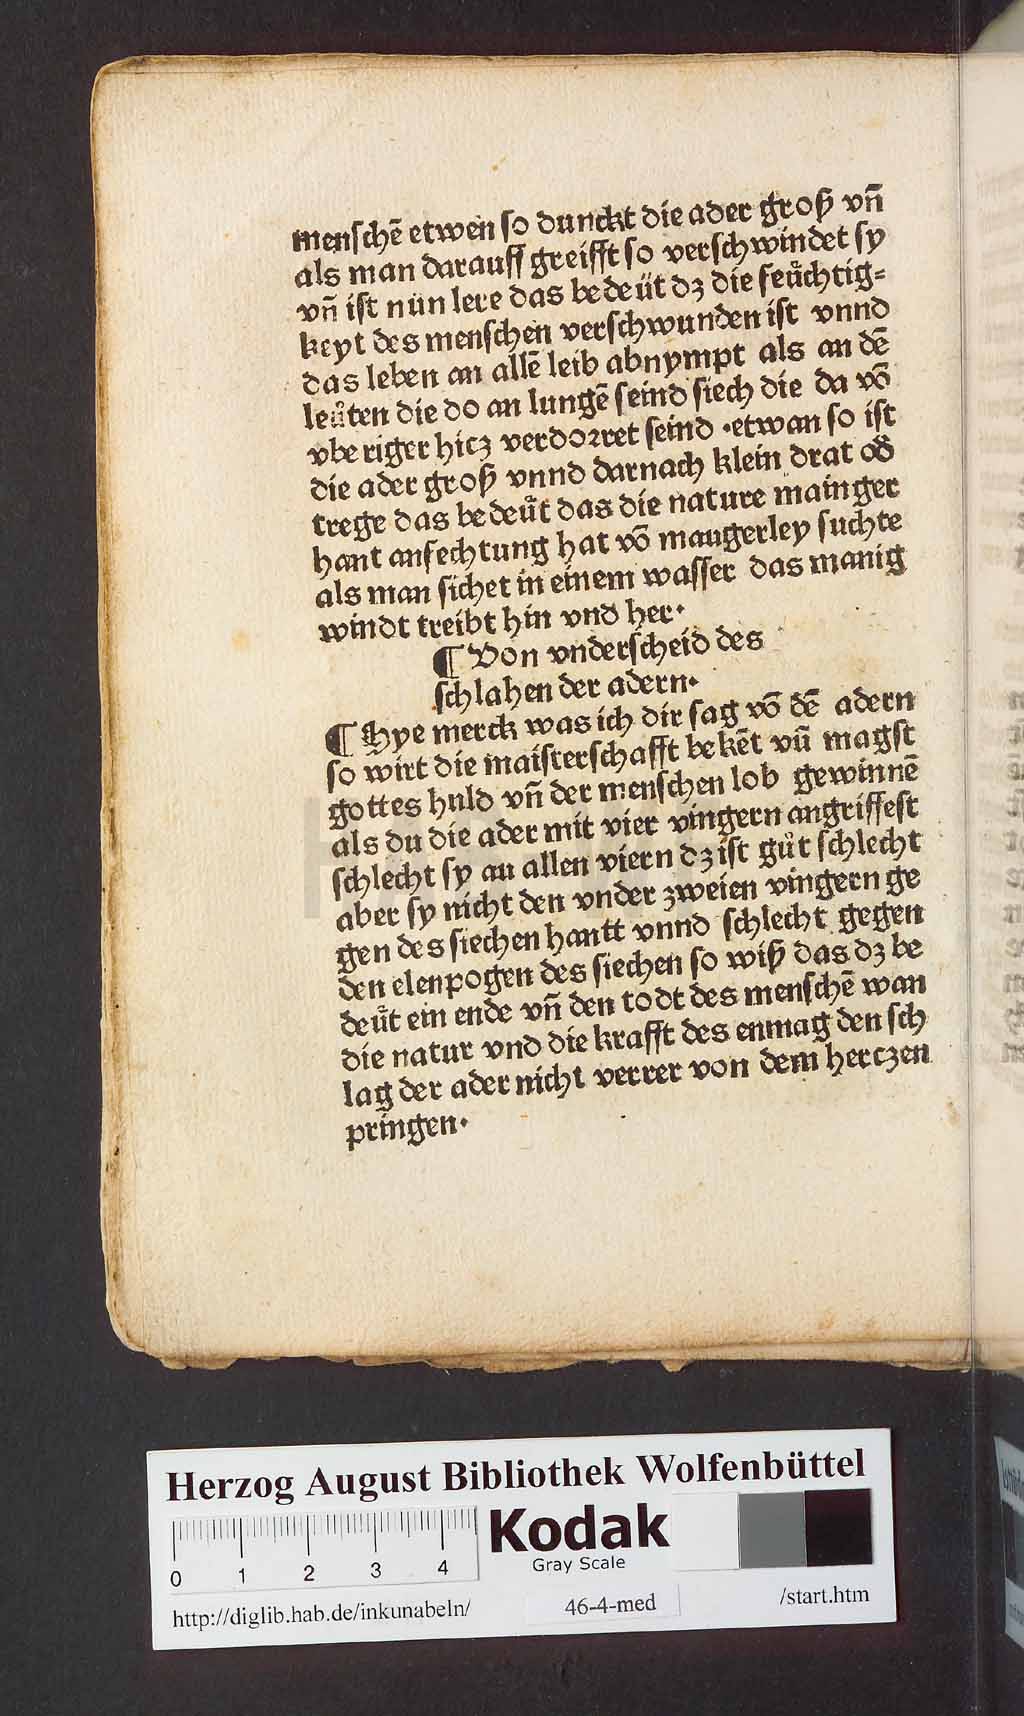 menschē etwen so dunckt die ader groß vn̄
als man darauff greifft so verschwindet sy
vn̄ ist nün lere das bedeüt dz die feuͤchtig=
keyt des menschen verschwunden ist vnnd
das leben an allē leib abnympt als an dē
leuͤten die do an lungē seind siech die da vō
vberiger hicz verdorret seind ·etwan so ist
die ader groß vnnd darnach klein drat od̄
trege das bedeuͤt das die nature mainger
hant anfechtung hat vō maugerley suchte
als man sichet in einem wasser das manig
windt treibt hin vnd her·
¶ Von vnderscheid des
schlahen der adern·
¶ Hye merck was ich dir sag vō dē adern
so wirt die maisterschafft bekēt vū magst
gottes huld vn̄ der menschen lob gewinnē
als du die ader mit vier vingern angriffest
schlecht sy an allen viern dz ist guͦt schlecht
aber sy nicht den vnder zweien vingern ge
gen des siechen hantt vnnd schlecht gegen
den elenpogen des siechen so wiß das dz be
deuͤt ein ende vn̄ den todt des menschē wan
die natur vnd die krafft des enmag den sch
lag der ader nicht verrer von dem herczen
pringen·
Herzog August Bibliothek Wolfenbüttel
Kodak
Gray Scale
0 1 2 3 4
http://diglib.hab.de/inkunabeln/ 46-4-med /start.htm